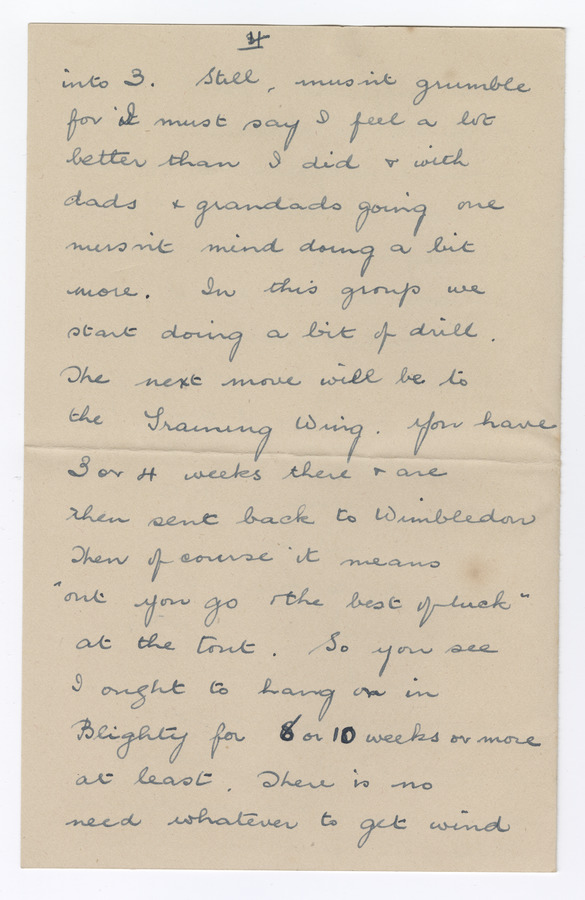 4
into 3. Still, musn't grumble
for I must say I feel a lot
better than I did & with
dads & grandads going one
mussn't mind doing a bit
more. In this group we
start doing a bit of drill.
The next move will be to
the Training Wing. You have
3 or 4 weeks there & are
then sent back to Wimbledon
Then of course it means
"out you go & the best of luck"
at the tout. So you see
I ought to hang on in
Blighty for 8 or 10 weeks or more
at least. There is no
need whatever to get wind